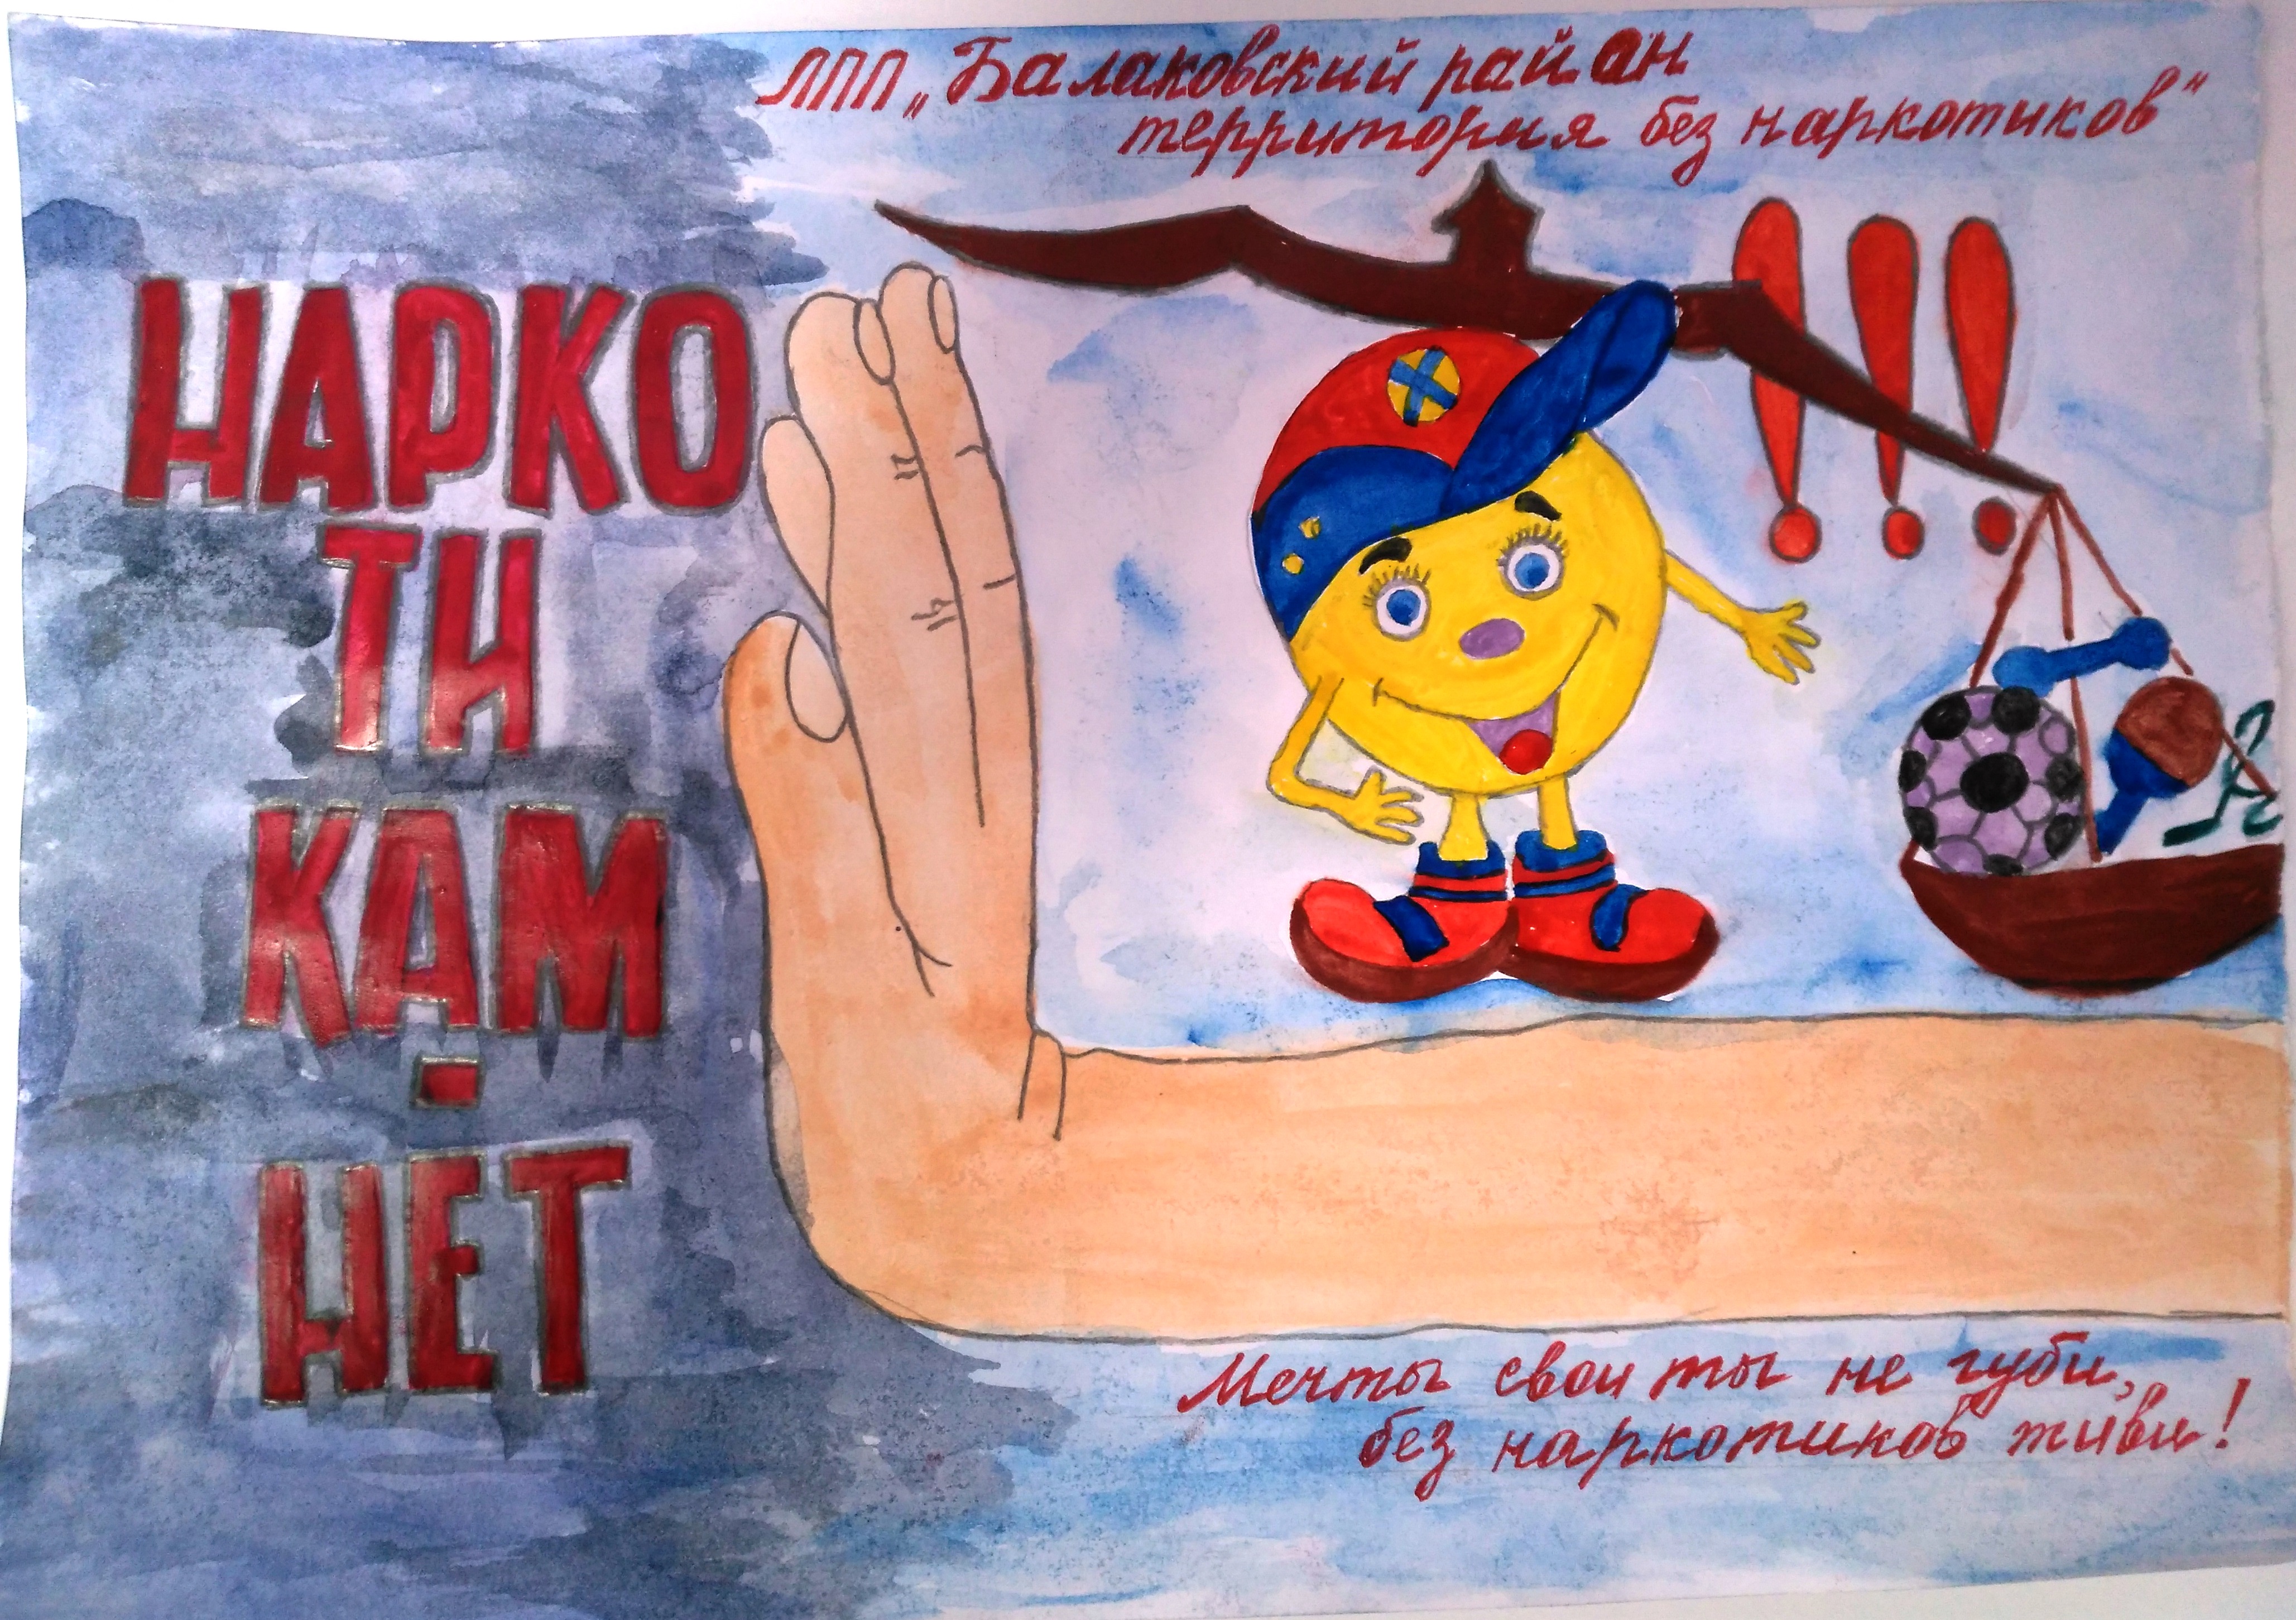 ЛПП „Балаковский район
территория без наркотиков"
!!!
НАРКО
ТИ
КАМ
-
НЕТ
Мечты свои ты не губи,
без наркотиков живи!